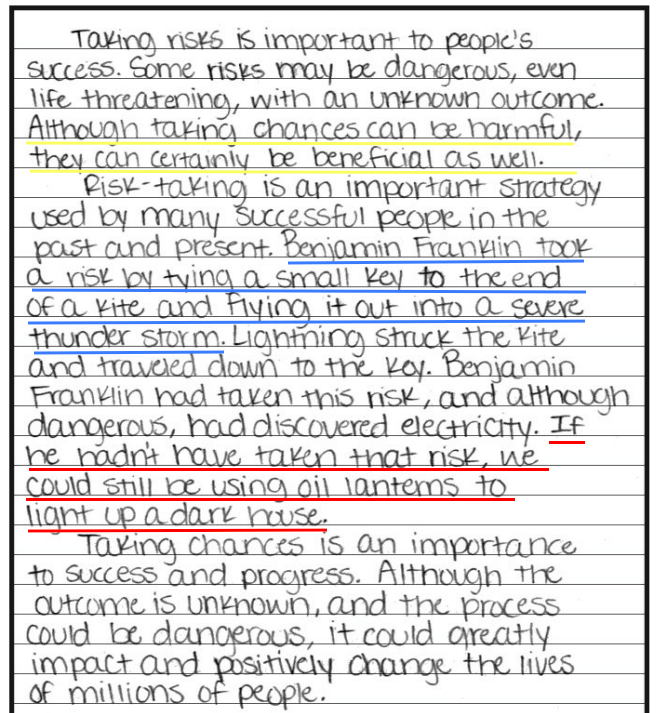 Taking risks is important to people's
success. Some risks may be dangerous, even
life threatening, with an unknown outcome.
Although taking chances can be harmful,
they can certainly be beneficial as well.
Risk-taking is an important strategy
used by many successful people in the
past and present. Benjamin Franklin took
a risk by tying a small key to the end
of a kite and flying it out into a severe
thunder storm. Lightning struck the kite
and traveled down to the key. Benjamin
Franklin had taken this risk, and although
dangerous, had discovered electricity. If
he hadn't have taken that risk, we
could still be using oil lanterns to
light up a dark house.
Taking chances is an importance
to success and progress. Although the
outcome is unknown, and the process
could be dangerous, it could greatly
impact and positively change the lives
of millions of people.